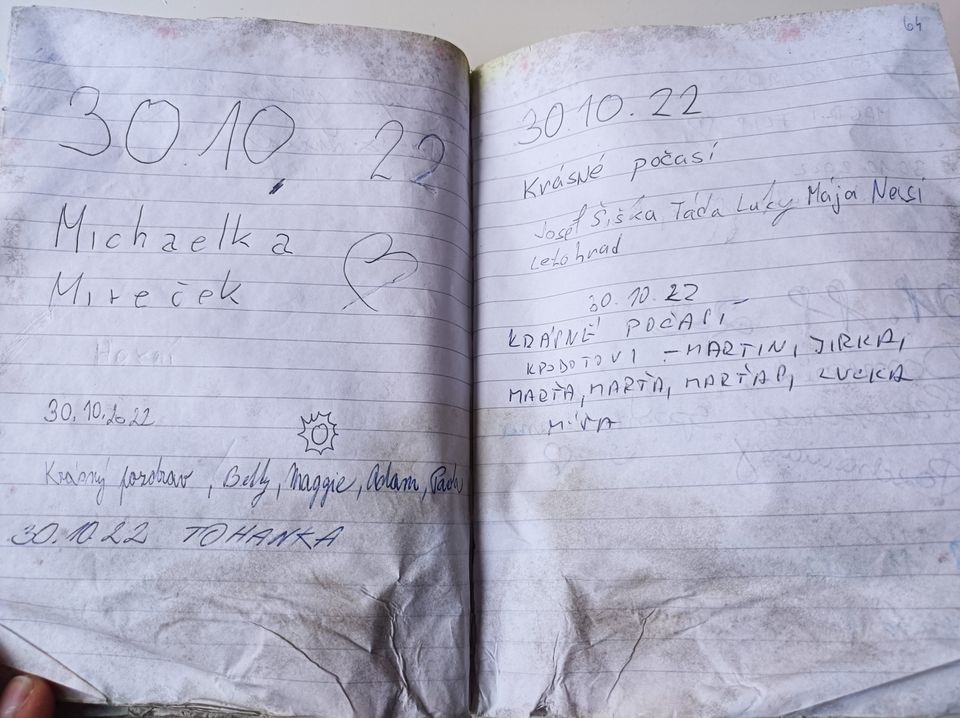 30 10. 22
Michaelka
Mireček
30.10.2022
Krásný pozdrav, Betty, Maggie, Adam,
30.10.22 TOHANKA
64
30.10.22
Krásné počasí
Josef Šiška Táda Luky Mája Nasi
Letohrad
30.10.22
KRÁSNÉ POČASÍ
- MARTIN, JIRKA,
MARŤA, MARŤA, LUCKA
MÍŠA